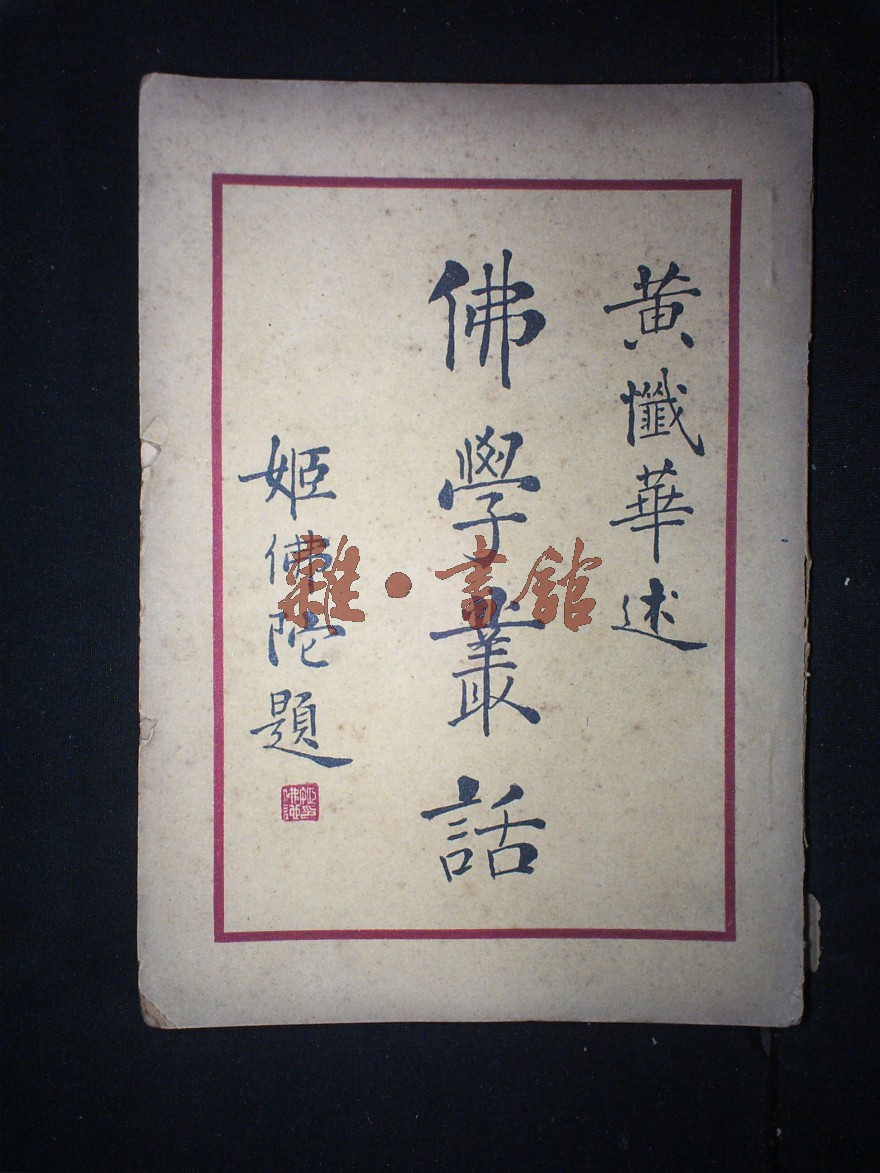 黄懺華述
佛學叢話
姬佛陀題
雜·書館